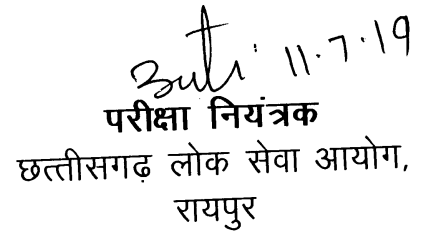 11.7.19
परीक्षा नियंत्रक
छत्तीसगढ़ लोक सेवा आयोग,
रायपुर